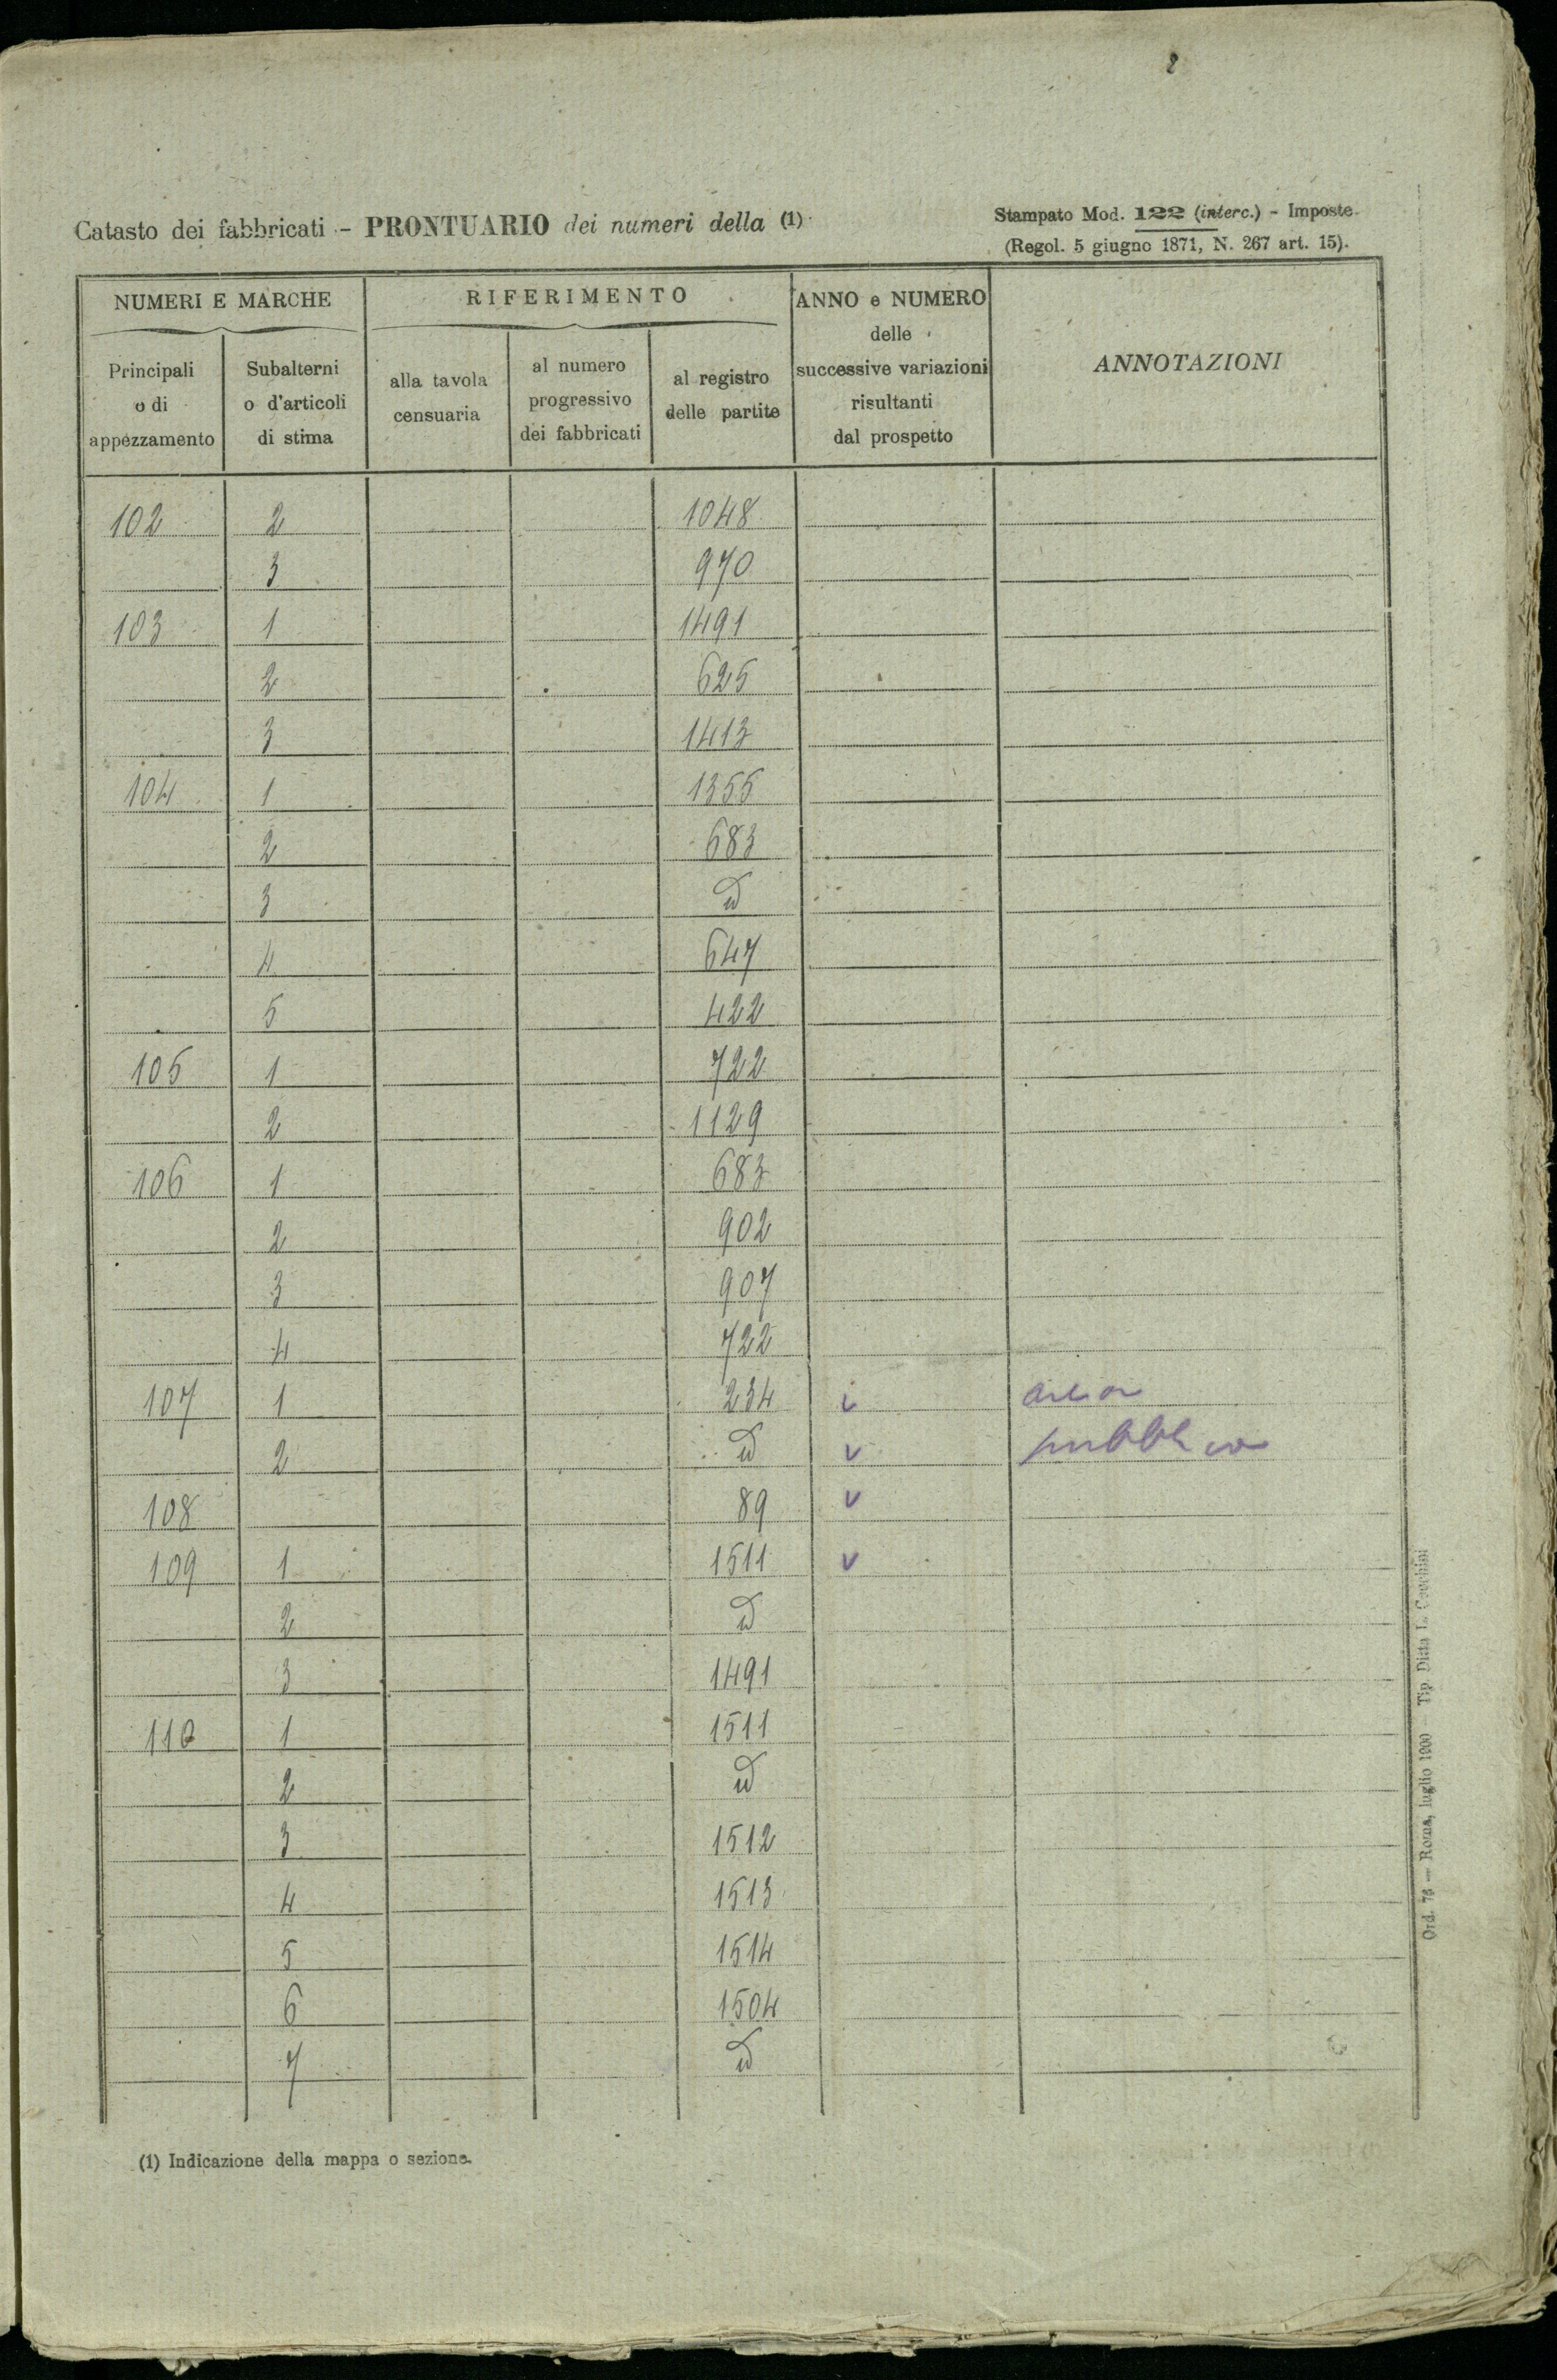 8
Catasto dei fabbricati - PRONTUARIO dei numeri della (1)
Stampato Mod. 122 (interc.) - Imposte.
(Regol. 5 giugno 1871, N. 267 art. 15).
NUMERI E MARCHE
RIFERIMENTO
ANNO e NUMERO
delle
successive variazioni
risultanti
dal prospetto
ANNOTAZIONI
Principali
o di
appezzamento
Subalterni
o d'articoli
di stima
alla tavola
censuaria
al numero
progressivo
dei fabbricati
al registro
delle partite
102 2 1048
3 970
103 1 1491
2 625
3 1413
104 1 1355
2 683
3 id
4 647
5 422
105 1 722
2 1129
106 1 683
2 902
3 907
4 722
107 1 234 v area
2 id v pubblica
108 89 v
109 1 1511 v
2 id
3 1491
110 1 1511
2 id
3 1512
4 1513
5 1514
6 1504
7 id
(1) Indicazione della mappa o sezione.
Ord. 76 — Roma, luglio 1900 — Tip. Ditta L. Cecchini